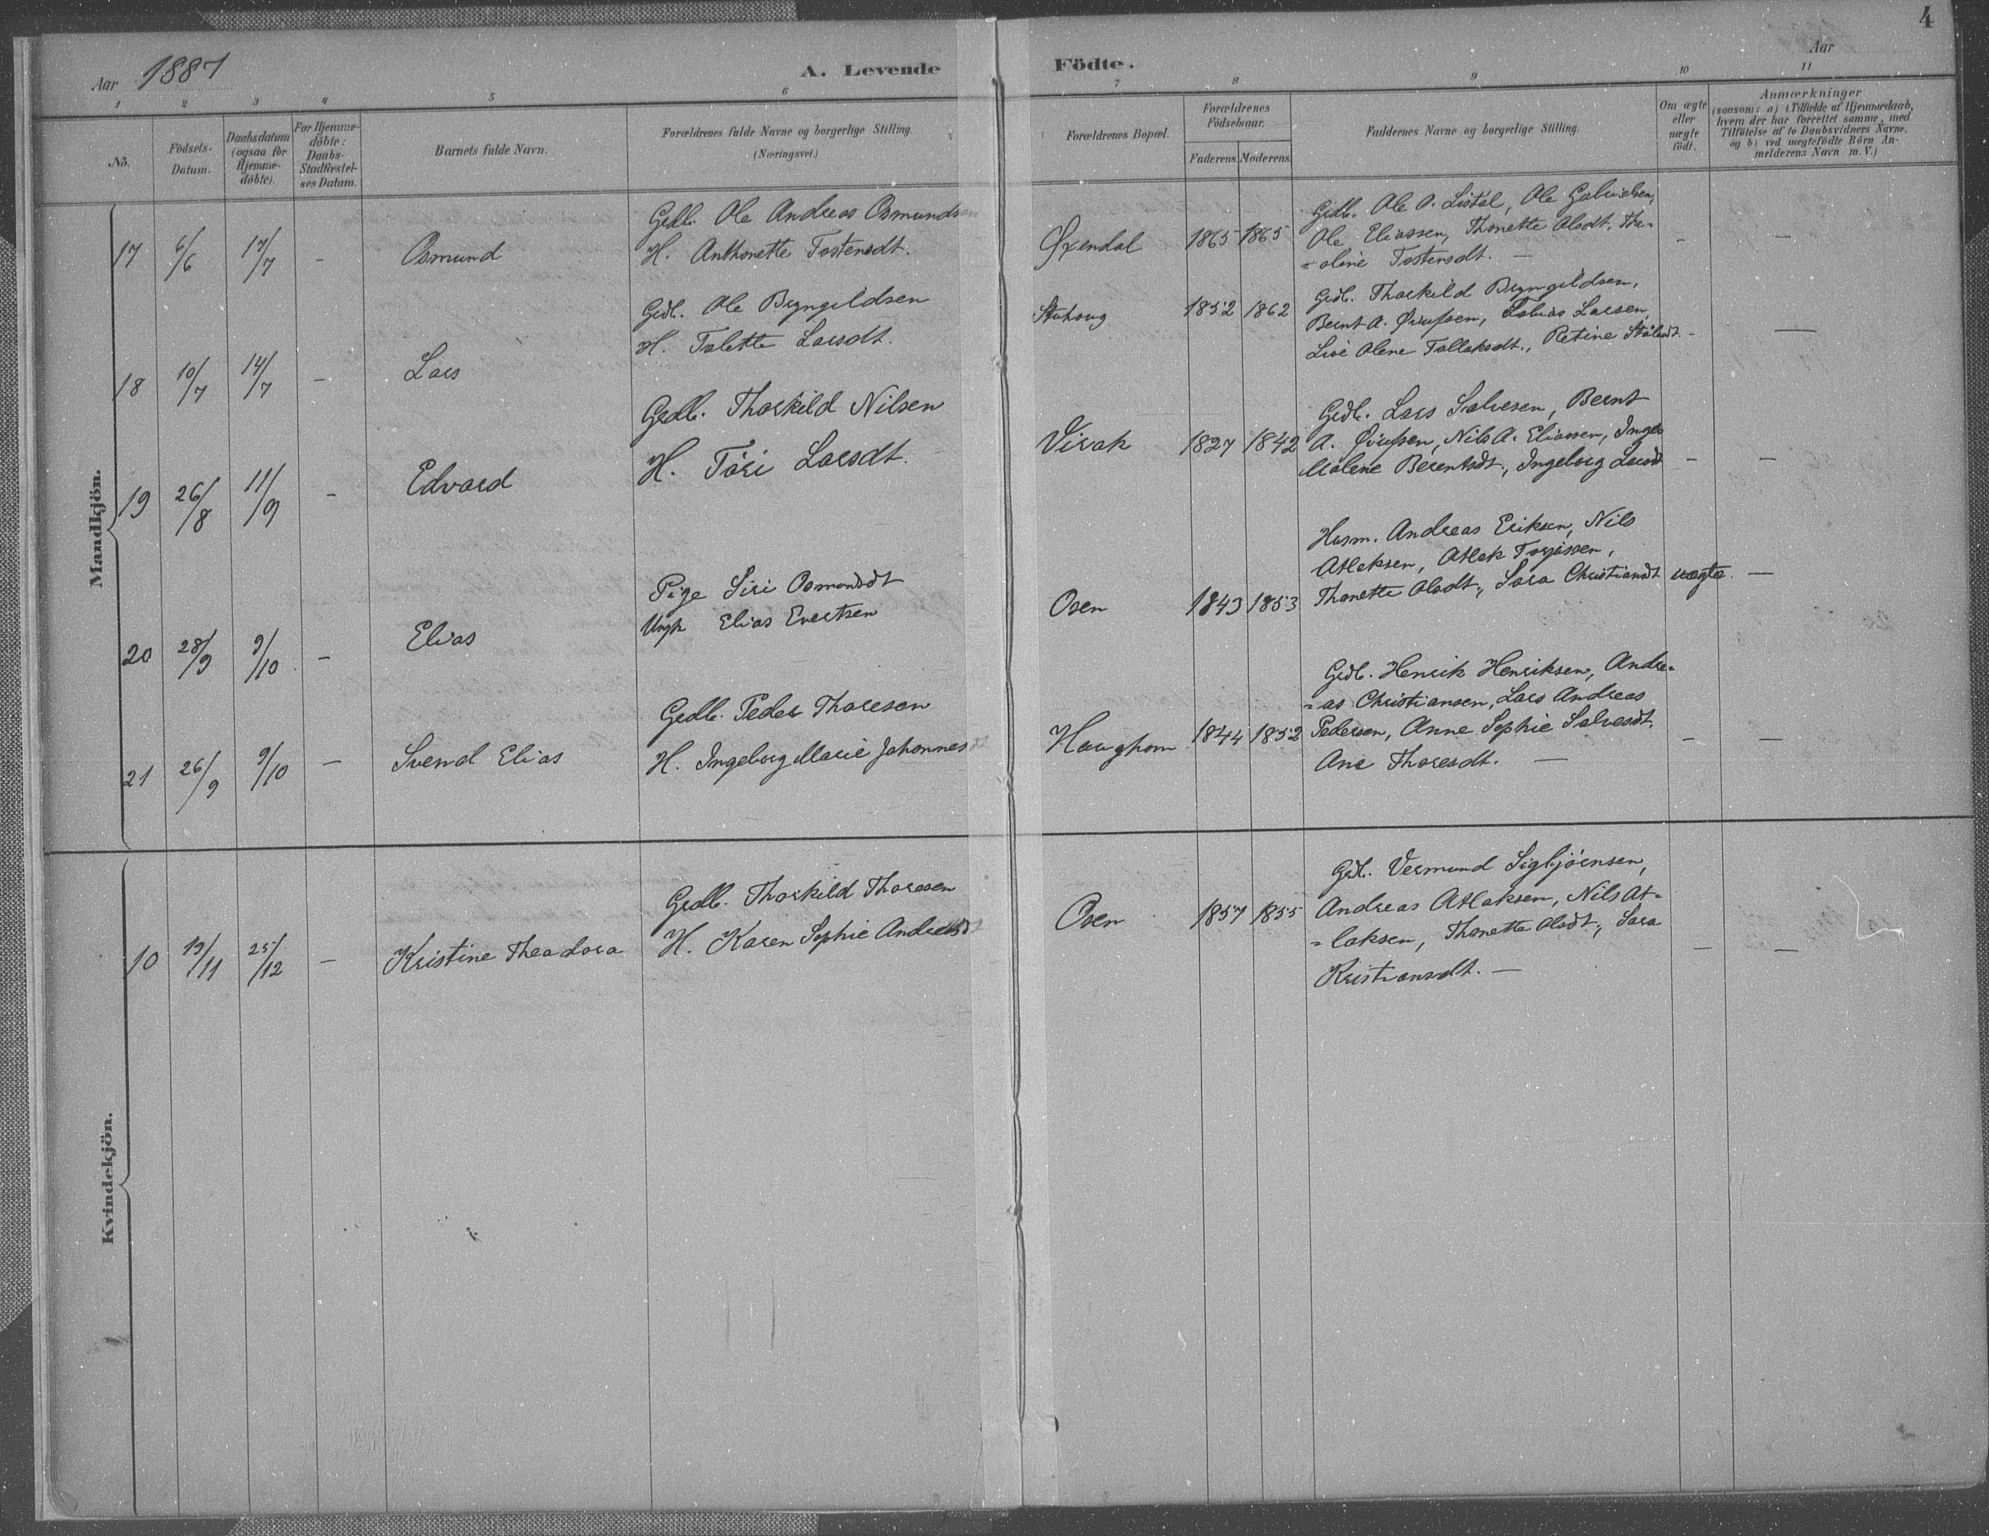 4
Aar 1887
A. Levende Födte.
Aar
1 2 3 4 5 6 7 8 9 10 11
No.
Födsels-
Datum.
Daabsdatum
(ogsaa for
Hjemme-
döbte).
For Hjemme-
döbte:
Daabs-
Stadfæstel-
ses Datum.
Barnets fulde Navn.
Forældrenes fulde Navne og borgerlige Stilling.
(Næringsvei.)
Forældrenes Bopæl.
Forældrenes
Födselsaar.
Faderens. Moderens.
Faddernes Navne og borgerlige Stilling.
Om ægte
eller
uægte
födt.
Anmærkninger
(saasom: a) i Tilfælde af Hjemmedaab,
hvem der har forrettet samme, med
Tilföielse af to Daabsvidners Navne,
og b) ved uægtefödte Börn An-
melderens Navn m. V.)
Mandkjön.
17 6/6 17/7 - Osmund
Grdb. Ole Andreas Osmundsen
H. Anthonette Tostensdt.
Øxendal 1865 1865
Grdb. Ole O. Listøl, Ole Gabrielsen,
Ole Eliassen, Thonette Olsdt. The-
=oline Tostensdt. —
- -
18 10/7 14/7 - Lars
Grdb. Ole Bryngildsen
H. Talette Larsdt.
Stuhoug 1852 1862
Grdb. Thorkild Bryngildsen,
Bernt A. Øvrussen, Tobias Larsen,
Lise Olene Tollaksdt., Retine
—
19 26/8 11/9 - Edvard
Grdb. Thorkild Nilsen
H. Töri Larsdt.
Virak 1827 1842
Grdb. Lars Salvesen, Bernt
A. Øvrussen, Nils A. Eliassen, Inger
Malene Berentsdt., Ingeborg Larsdt
- -
20 28/9 9/10 - Elias
Pige Siri Osmundsdt
Ungk Elias Evertsen
Osen 1843 1853
Husm. Andreas Eriksen, Nils
Atlaksen, Atlak Torjussen,
Thonette Olsdt., Sara Christiansdt
uægte. —
21 26/9 9/10 - Svend Elias
Grdb. Peder Thoresen
H. Ingeborg Marie Johannesdt
Haughom 1844 1852
Grdb. Henrik Henriksen, Andre-
=as Christiansen, Lars Andreas
Pedersen, Anne Sophie Salvesdt.
Ane Thoresdt. —
- -
Kvindekjön.
10 19/11 25/12 - Kristine Theodora
Grdb. Thorkild Thoresen
H. Karen Sophie Andreasdt
Osen 1857 1855
Grdb. Vermund Sigbjörnsen,
Andreas Atlaksen, Nils At-
=laksen, Thonette Olsdt., Sara
Kristiansdt. —
- -